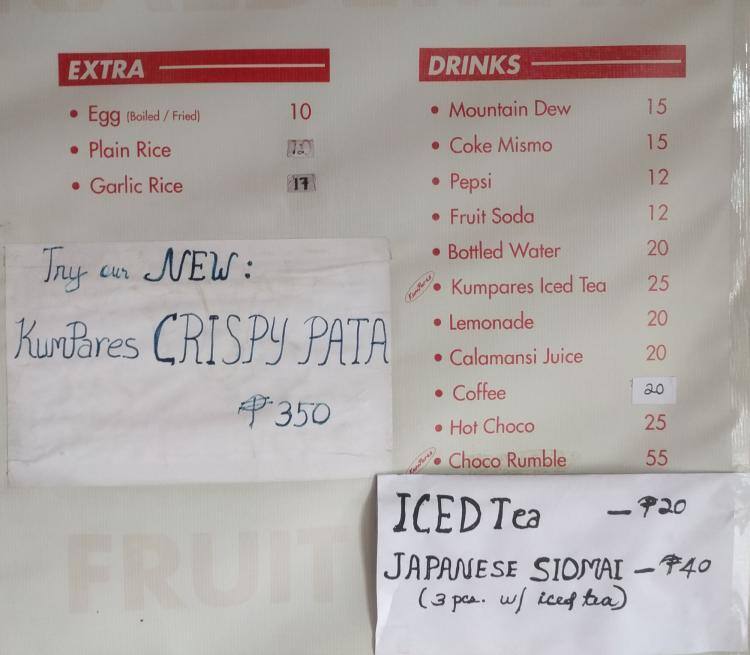 EXTRA
• Egg (Boiled / Fried) 10
• Plain Rice 12
• Garlic Rice 17
Try our NEW:
KumPares CRISPY PATA
₱350
DRINKS
• Mountain Dew 15
• Coke Mismo 15
• Pepsi 12
• Fruit Soda 12
• Bottled Water 20
KumPares • Kumpares Iced Tea 25
• Lemonade 20
• Calamansi Juice 20
• Coffee 20
• Hot Choco 25
KumPares • Choco Rumble 55
ICED Tea — ₱20
JAPANESE SIOMAI — ₱40
(3 pcs. w/ iced tea)
FRUIT